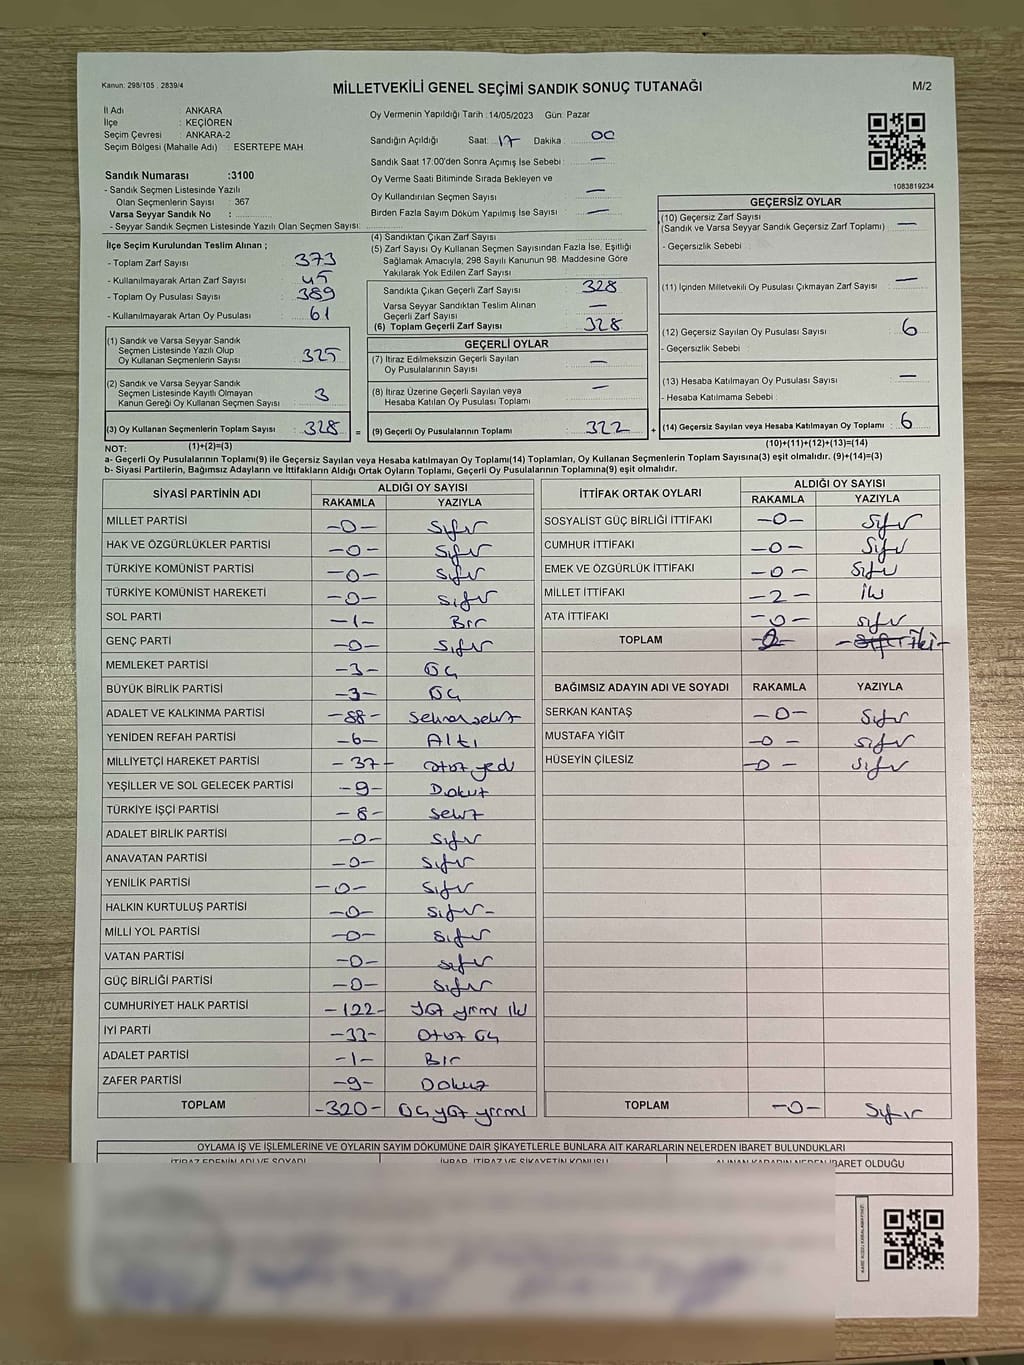 Kanun: 298/105 2839/4
MİLLETVEKİLİ GENEL SEÇİMİ SANDIK SONUÇ TUTANAĞI
M/2
İl Adı ANKARA
İlçe : KEÇİÖREN
Seçim Çevresi : ANKARA-2
Seçim Bölgesi (Mahalle Adı) : ESERTEPE MAH.
Oy Vermenin Yapıldığı Tarih :14/05/2023 Gün: Pazar
Sandığın Açıldığı Saat: 17 Dakika : 00
Sandık Saat 17:00'den Sonra Açımış İse Sebebi : —
Oy Verme Saati Bitiminde Sırada Bekleyen ve
Oy Kullandırılan Seçmen Sayısı : —
Birden Fazla Sayım Döküm Yapılmış İse Sayısı : —
1083819234
Sandık Numarası :3100
- Sandık Seçmen Listesinde Yazılı
Olan Seçmenlerin Sayısı : 367
Varsa Seyyar Sandık No :
- Seyyar Sandık Seçmen Listesinde Yazılı Olan Seçmen Sayısı:
İlçe Seçim Kurulundan Teslim Alınan ;
- Toplam Zarf Sayısı : 373
- Kullanılmayarak Artan Zarf Sayısı : 45
- Toplam Oy Pusulası Sayısı : 389
- Kullanılmayarak Artan Oy Pusulası : 61
(1) Sandık ve Varsa Seyyar Sandık
Seçmen Listesinde Yazılı Olup
Oy Kullanan Seçmenlerin Sayısı : 325
(2) Sandık ve Varsa Seyyar Sandık
Seçmen Listesinde Kayıtlı Olmayan
Kanun Gereği Oy Kullanan Seçmen Sayısı : 3
(3) Oy Kullanan Seçmenlerin Toplam Sayısı : 328 =
(4) Sandıktan Çıkan Zarf Sayısı :
(5) Zarf Sayısı Oy Kullanan Seçmen Sayısından Fazla İse, Eşitliği
Sağlamak Amacıyla, 298 Sayılı Kanunun 98. Maddesine Göre
Yakılarak Yok Edilen Zarf Sayısı :
Sandıkta Çıkan Geçerli Zarf Sayısı : 328
Varsa Seyyar Sandıktan Teslim Alınan
Geçerli Zarf Sayısı : —
(6) Toplam Geçerli Zarf Sayısı : 328
GEÇERLİ OYLAR
(7) İtiraz Edilmeksizin Geçerli Sayılan
Oy Pusulalarının Sayısı : —
(8) İtiraz Üzerine Geçerli Sayılan veya
Hesaba Katılan Oy Pusulası Toplamı : —
(9) Geçerli Oy Pusulalarının Toplamı : 322 +
GEÇERSİZ OYLAR
(10) Geçersiz Zarf Sayısı
(Sandık ve Varsa Seyyar Sandık Geçersiz Zarf Toplamı) : —
- Geçersizlik Sebebi :
(11) İçinden Milletvekili Oy Pusulası Çıkmayan Zarf Sayısı : —
(12) Geçersiz Sayılan Oy Pusulası Sayısı : 6
- Geçersizlik Sebebi :
(13) Hesaba Katılmayan Oy Pusulası Sayısı : —
- Hesaba Katılmama Sebebi :
(14) Geçersiz Sayılan veya Hesaba Katılmayan Oy Toplamı : 6
NOT: (1)+(2)=(3) (10)+(11)+(12)+(13)=(14)
a- Geçerli Oy Pusulalarının Toplamı(9) ile Geçersiz Sayılan veya Hesaba katılmayan Oy Toplamı(14) Toplamları, Oy Kullanan Seçmenlerin Toplam Sayısına(3) eşit olmalıdır. (9)+(14)=(3)
b- Siyasi Partilerin, Bağımsız Adayların ve İttifakların Aldığı Ortak Oyların Toplamı, Geçerli Oy Pusulalarının Toplamına(9) eşit olmalıdır.
SİYASİ PARTİNİN ADI ALDIĞI OY SAYISI
RAKAMLA YAZIYLA
MİLLET PARTİSİ -0- Sıfır
HAK VE ÖZGÜRLÜKLER PARTİSİ -0- Sıfır
TÜRKİYE KOMÜNİST PARTİSİ -0- Sıfır
TÜRKİYE KOMÜNİST HAREKETİ -0- Sıfır
SOL PARTİ -1- Bir
GENÇ PARTİ -0- Sıfır
MEMLEKET PARTİSİ -3- Üç
BÜYÜK BİRLİK PARTİSİ -3- Üç
ADALET VE KALKINMA PARTİSİ -88- Seksensekiz
YENİDEN REFAH PARTİSİ -6- Altı
MİLLİYETÇİ HAREKET PARTİSİ -37- otuz yedi
YEŞİLLER VE SOL GELECEK PARTİSİ -9- Dokuz
TÜRKİYE İŞÇİ PARTİSİ -8- Sekiz
ADALET BİRLİK PARTİSİ -0- Sıfır
ANAVATAN PARTİSİ -0- Sıfır
YENİLİK PARTİSİ -0- Sıfır
HALKIN KURTULUŞ PARTİSİ -0- Sıfır-
MİLLİ YOL PARTİSİ -0- Sıfır
VATAN PARTİSİ -0- Sıfır
GÜÇ BİRLİĞİ PARTİSİ -0- Sıfır
CUMHURİYET HALK PARTİSİ -122- Yüz yirmi iki
İYİ PARTİ -33- Otuz üç
ADALET PARTİSİ -1- Bir
ZAFER PARTİSİ -9- Dokuz
TOPLAM -320- Üçyüz yirmi
İTTİFAK ORTAK OYLARI ALDIĞI OY SAYISI
RAKAMLA YAZIYLA
SOSYALİST GÜÇ BİRLİĞİ İTTİFAKI -0- Sıfır
CUMHUR İTTİFAKI -0- Sıfır
EMEK VE ÖZGÜRLÜK İTTİFAKI -0- Sıfır
MİLLET İTTİFAKI -2- iki
ATA İTTİFAKI -0- sıfır
TOPLAM -2- -Sıfır İki-
BAĞIMSIZ ADAYIN ADI VE SOYADI RAKAMLA YAZIYLA
SERKAN KANTAŞ -0- Sıfır
MUSTAFA YİĞİT -0- Sıfır
HÜSEYİN ÇİLESİZ -0- Sıfır
TOPLAM -0- Sıfır
OYLAMA İŞ VE İŞLEMLERİNE VE OYLARIN SAYIM DÖKÜMÜNE DAİR ŞİKAYETLERLE BUNLARA AİT KARARLARIN NELERDEN İBARET BULUNDUKLARI
İTİRAZ EDENİN ADI VE SOYADI İHBAR, İTİRAZ VE ŞİKAYETİN KONUSU ALINAN KARARIN NEDEN İBARET OLDUĞU